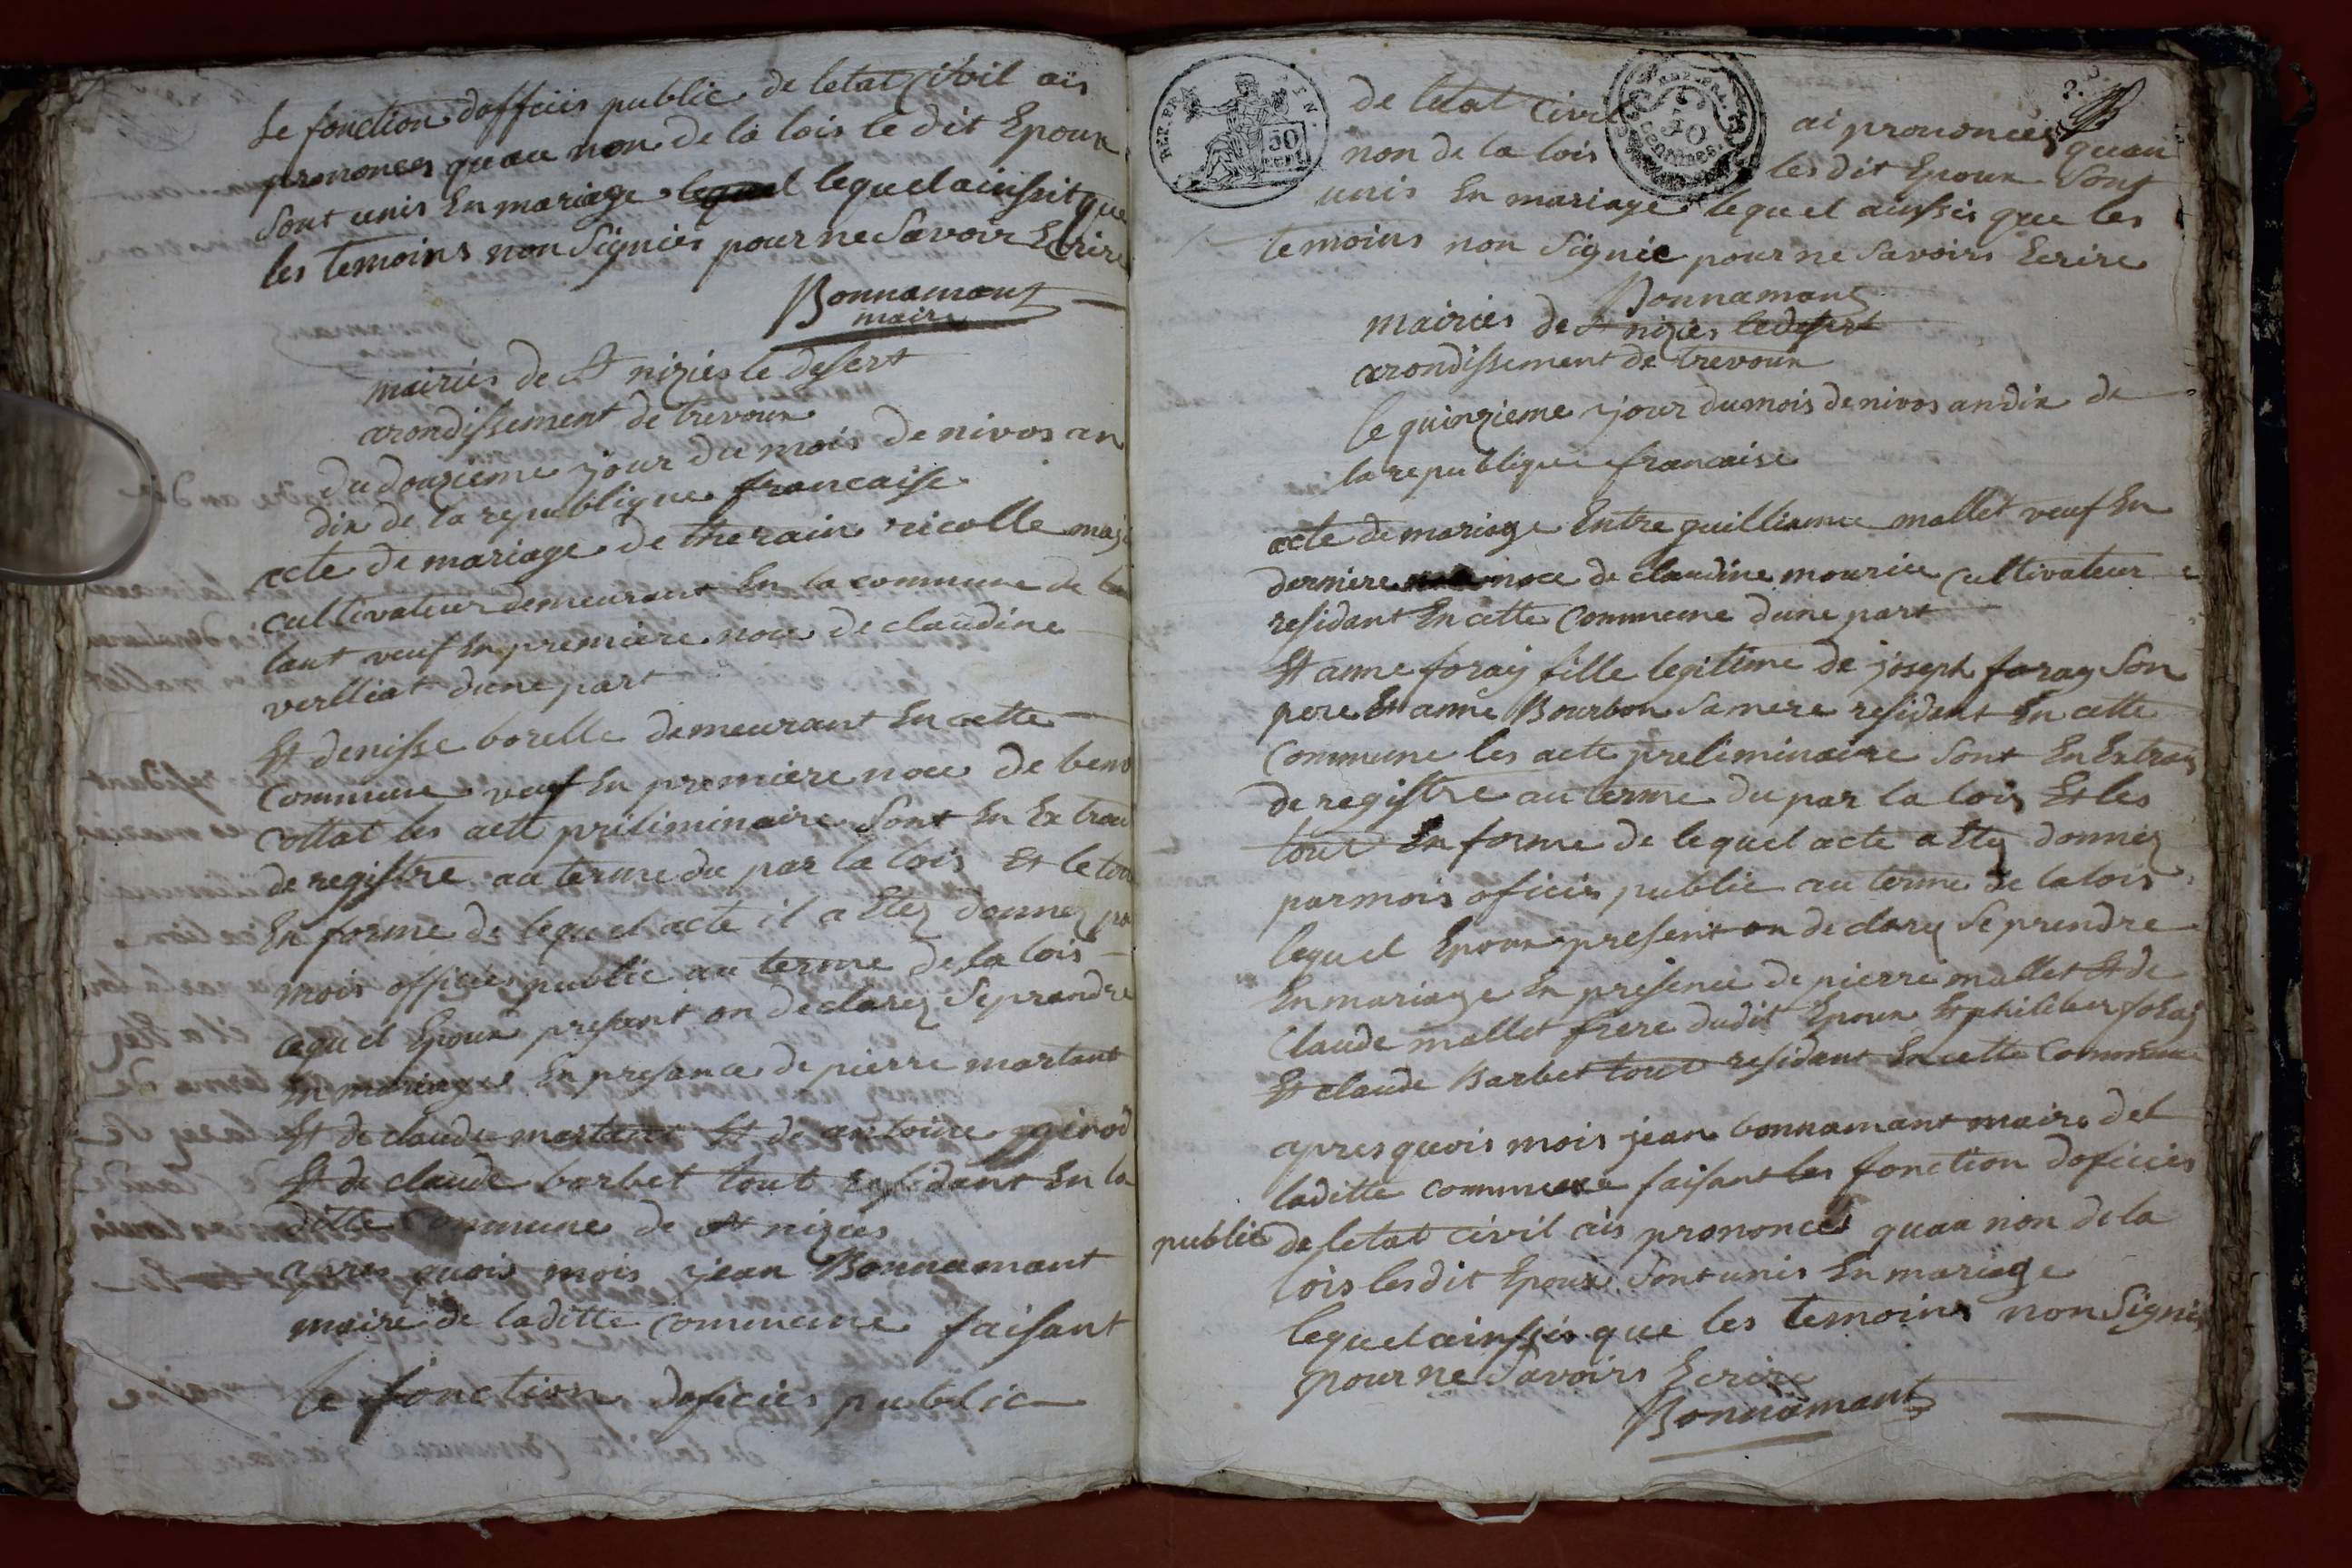 Le fonction dofficiis public de letat Civil ais
prononces quau non de la lois le dit Epoux
Sont unis En mariage lequel ainssit que
les temoins non Signiés pour ne Savoir Ecrire
Bonnamant
maire
mairies de St nizies le desert
arondissement de trevoux
du douzieme jour du mois de nivos an
dix de la republique francaise
acte de mariage de therain nicolle
cultivateur demeurant En la commune de
lant veuf En premiere noce de claudine
verlliat dune part
Et denisse borelle demeurant En cette
Commune veuf En premiere noce de beno
cottat les acte préliminaire Sont En Extrai
de registre au terme du par la lois Et le tou
En forme de lequel acte il a Etez donnez par
mois officies public au terme de la lois
lequel Epoux present on declarez Se prendre
En mariage En presance de pierre martant
Et de claude martant Et de antoine girod
Et de claude barbet tout residant En la
ditte commune de St nizies
apres quois mois jean Bonnamant
maire de laditte Commune faisant
le fonction doficies public
REP. FRA.
TIN.
50
cent.
REP. FRA.
50
centimes.
de letat Civil ai prononcés quau
non de la lois les dit Epoux Sont
unis En mariage lequel ainssis que les
temoins non Signié pour ne Savoirs Ecrire
Bonnamant
mairies de St nizies le desert
arondissement de trevoux
le quinzieme jour du mois de nivos an dix de
la republique francaise
acte de mariage Entre guilliaume mallet veuf En
derniere noce de claudine mourier Cultivateur
residant En cette Commune dune part
Et anne foray fille legitime de joseph foray Son
pere Et anne Bourbon Sa mere residant En cette
Commune les acte preliminaire Sont En Extrais
de registre au terme du par la lois Et les
tout En forme de lequel acte a Etez donnez
par mois oficies public au terme de la lois
lequel Epoux present on declarez Se prendre
En mariage En presence de pierre mallet Et de
Claude mallet frere dudit Epoux Et philiber foray
Et claude Barbet tout residant En cette Commune
apres quois mois jean bonnamant maire de
laditte commune faisant les fonction doficies
public de letat civil ais prononcés quau non de la
lois lesdit Epoux Sont unis En mariage
lequel ainssis que les temoins non Signié
pour ne Savoirs Ecrire
Bonnamant